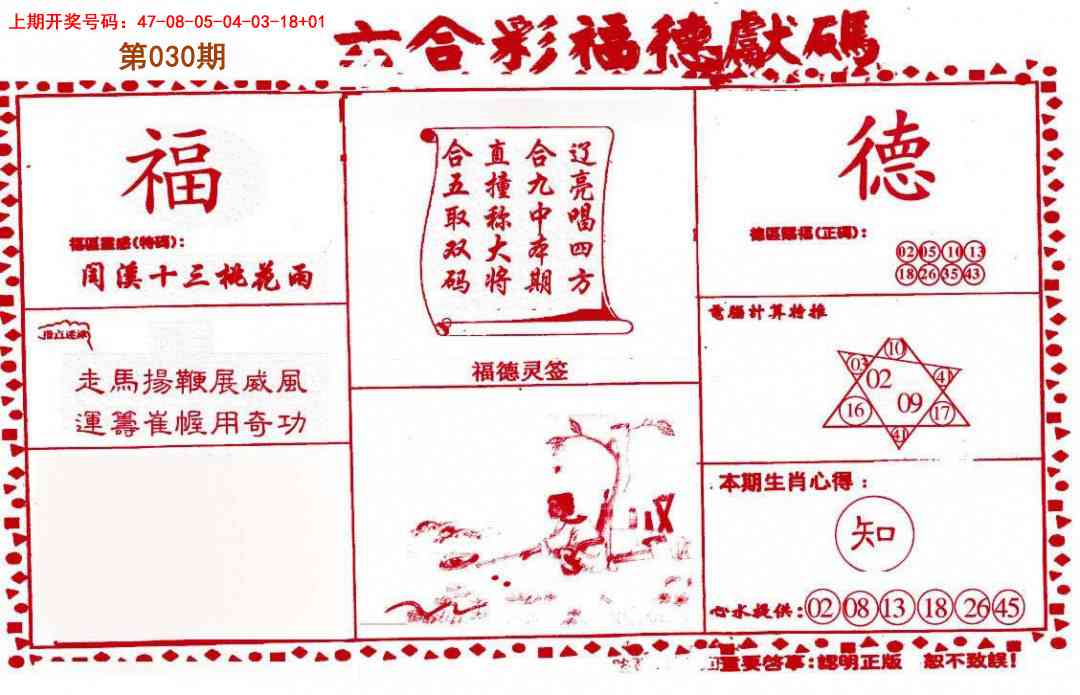 上期开奖号码：47-08-05-04-03-18+01
第030期
六合彩福德獻碼
福
福區靈感(特碼)：
閏溪十三桃花雨
走馬揚鞭展威風
運籌崔幄用奇功
辽亮唱四方
合九中本期
直撞称大将
合五取双码
福德灵签
德
德區賜福(正碼)：
02 05 10 13
18 26 35 43
電腦計算特推
10
03
02
41
16
09
17
41
本期生肖心得：
知
心水提供：02 08 13 18 26 45
重要啓事：認明正版 恕不致誤！